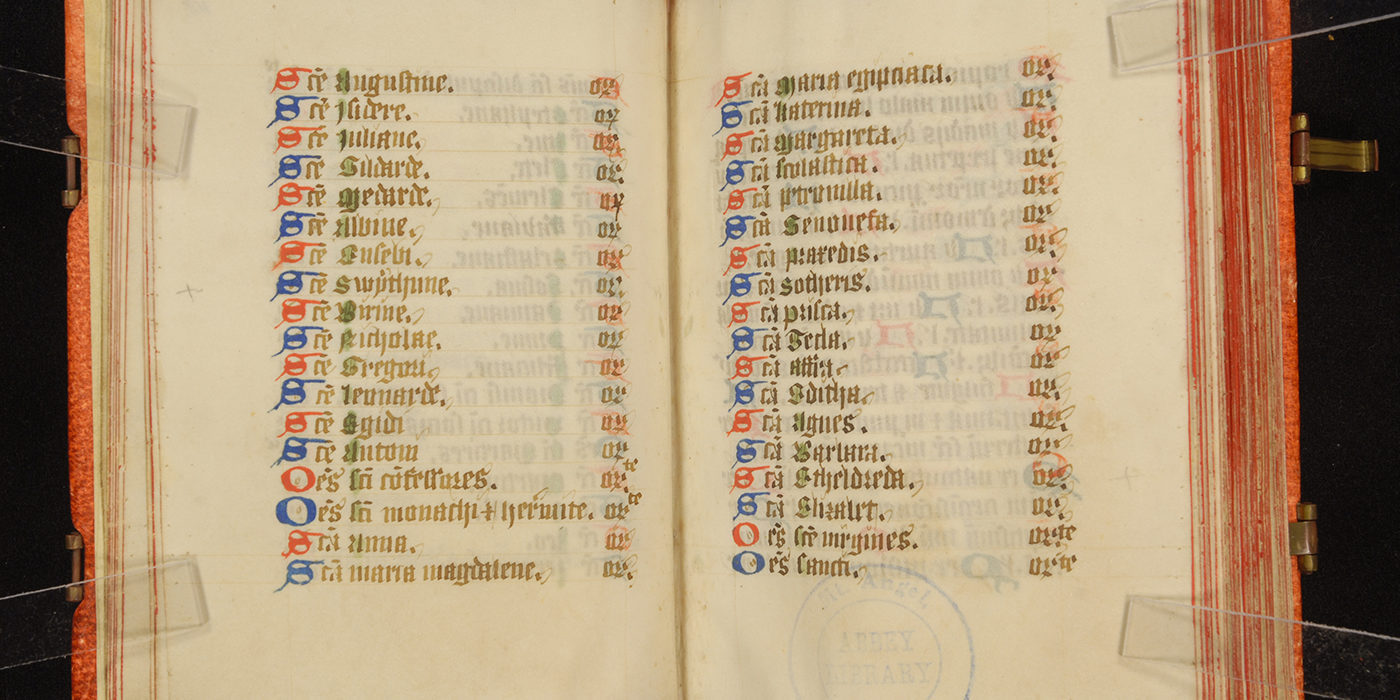 Scē Augustine. or
Scē Isidere. or
Scē Iuliane. or
Scē Gildarde. or
Scē Medarde. or
Scē Albine. or
Scē Eusebi. or
Scē Swythune. or
Scē Birine. or
Scē Nicholae. or
Scē Gregori. or
Scē Leonarde. or
Scē Egidi or
Scē Antoni or
Oēs sc̄i cōfessores. or.te
Oēs sc̄i monachi ⁊ hermite. or.te
Scā Anna. or
Scā maria magdalene. or.
Scā Maria egipciaca. or.
Scā katerina. or.
Scā Margareta. or.
Scā scolastica. or.
Scā petronilla. or.
Scā Genouefa. or
Scā praxedis. or.
Scā Sotheris. or
Scā prisca. or.
Scā Tecla. or
Scā Affra. or
Scā Editha. or.
Scā Agnes. or
Scā Barbara. or
Scā Etheldreda. or.
Scā Elizabet. or.
Oēs scē virgines. or.te
Oēs sancti. or.te
ABBEY
LIBRARY